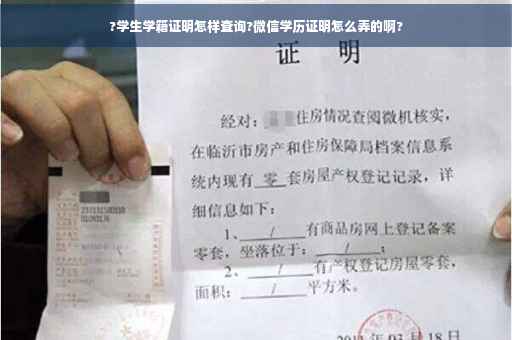 ?学生学籍证明怎样查询?微信学历证明怎么弄的啊?
证 明
经对: 住房情况查阅微机核实,
在临沂市房产和住房保障局档案信息系
统内现有 零 套房屋产权登记记录,详
细信息如下:
1、 / 有商品房网上登记备案
零套,坐落位于: / ;
2、 / 有产权登记房屋零套,
面积: / 平方米。
03月18日